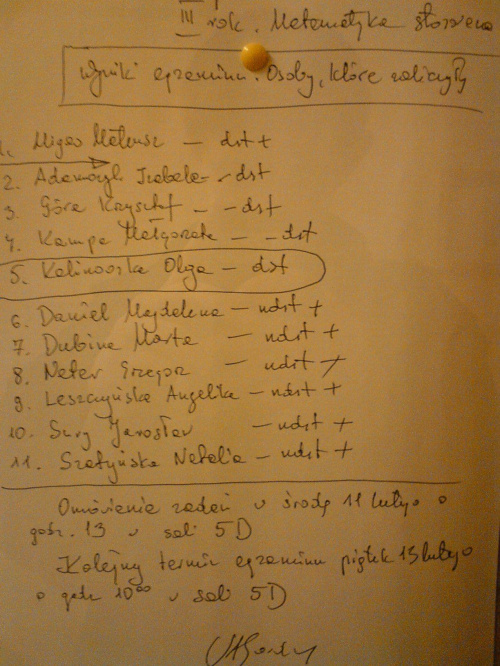 III rok. Matematyka stosowana
Wyniki egzaminu. Osoby, które zaliczyły
1. Migas Mateusz - dst +
2. Adamczyk Izabela - dst
3. Góra Krzysztof - - dst
4. Kempa Małgorzata - - dst
5. Kalinowska Olga - dst
6. Daniel Magdalena - ndst +
7. Dubina Marta - ndst +
8. Grzegorz - ndst +
9. Leszczyńska Angelika - ndst +
10. Jarosław - ndst +
11. Szatyńska Natalia - ndst +
Omówienie zadań w środę 11 lutego o
godz. 13 w sali 5D
Kolejny termin egzaminu piątek 13 lutego
o godz 10⁰⁰ w sali 5D